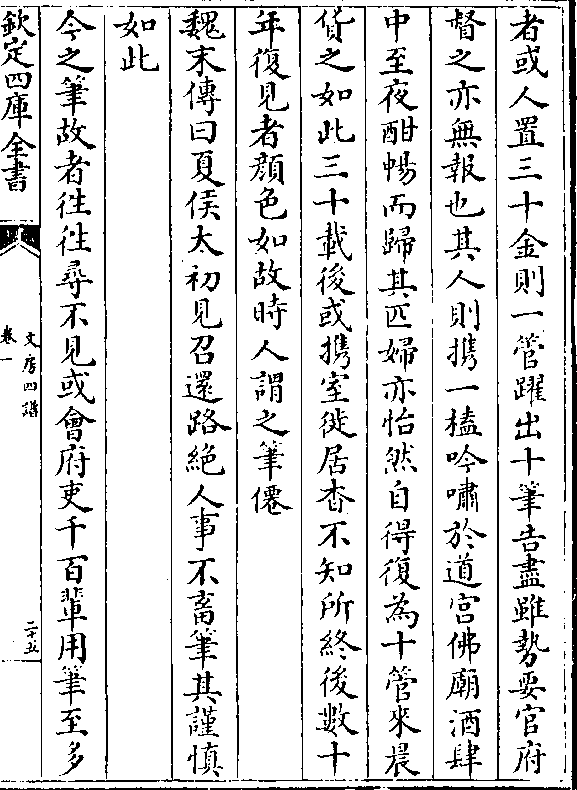 者或人置三十金則一管躍出十筆告盡雖勢要官府
督之亦無報也其人則攜一榼吟嘯於道宮佛廟酒肆
中至夜酣暢而歸其匹婦亦怡然自得復為十管來晨
貨之如此三十載後或攜室徙居杳不知所終後數十
年復見者顏色如故時人謂之筆僊
魏末傳曰夏侯太初見召還路絶人事不畜筆其謹慎
如此
今之筆故者往往尋不見或會府吏千百輩用筆至多
欽定四庫全書
文房四譜
卷一
二十五